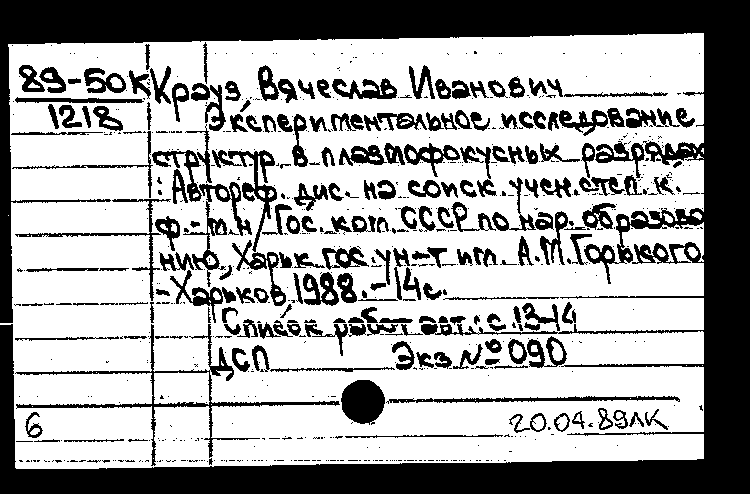 89-50К Крауз, Вячеслав Иванович
1218 Экспериментальное исследование
структур в плазмофокусных разрядах
: Автореф. дис. на соиск. учен. степ. к.
ф.-м.н / Гос. ком. СССР по нар. образова
нию, Харьк. гос. ун-т им. А.М.Горького.
- Харьков, 1988. - 14с.
Список работ авт.: с. 13-14
ДСП Экз № 090
6 20.04.89лк